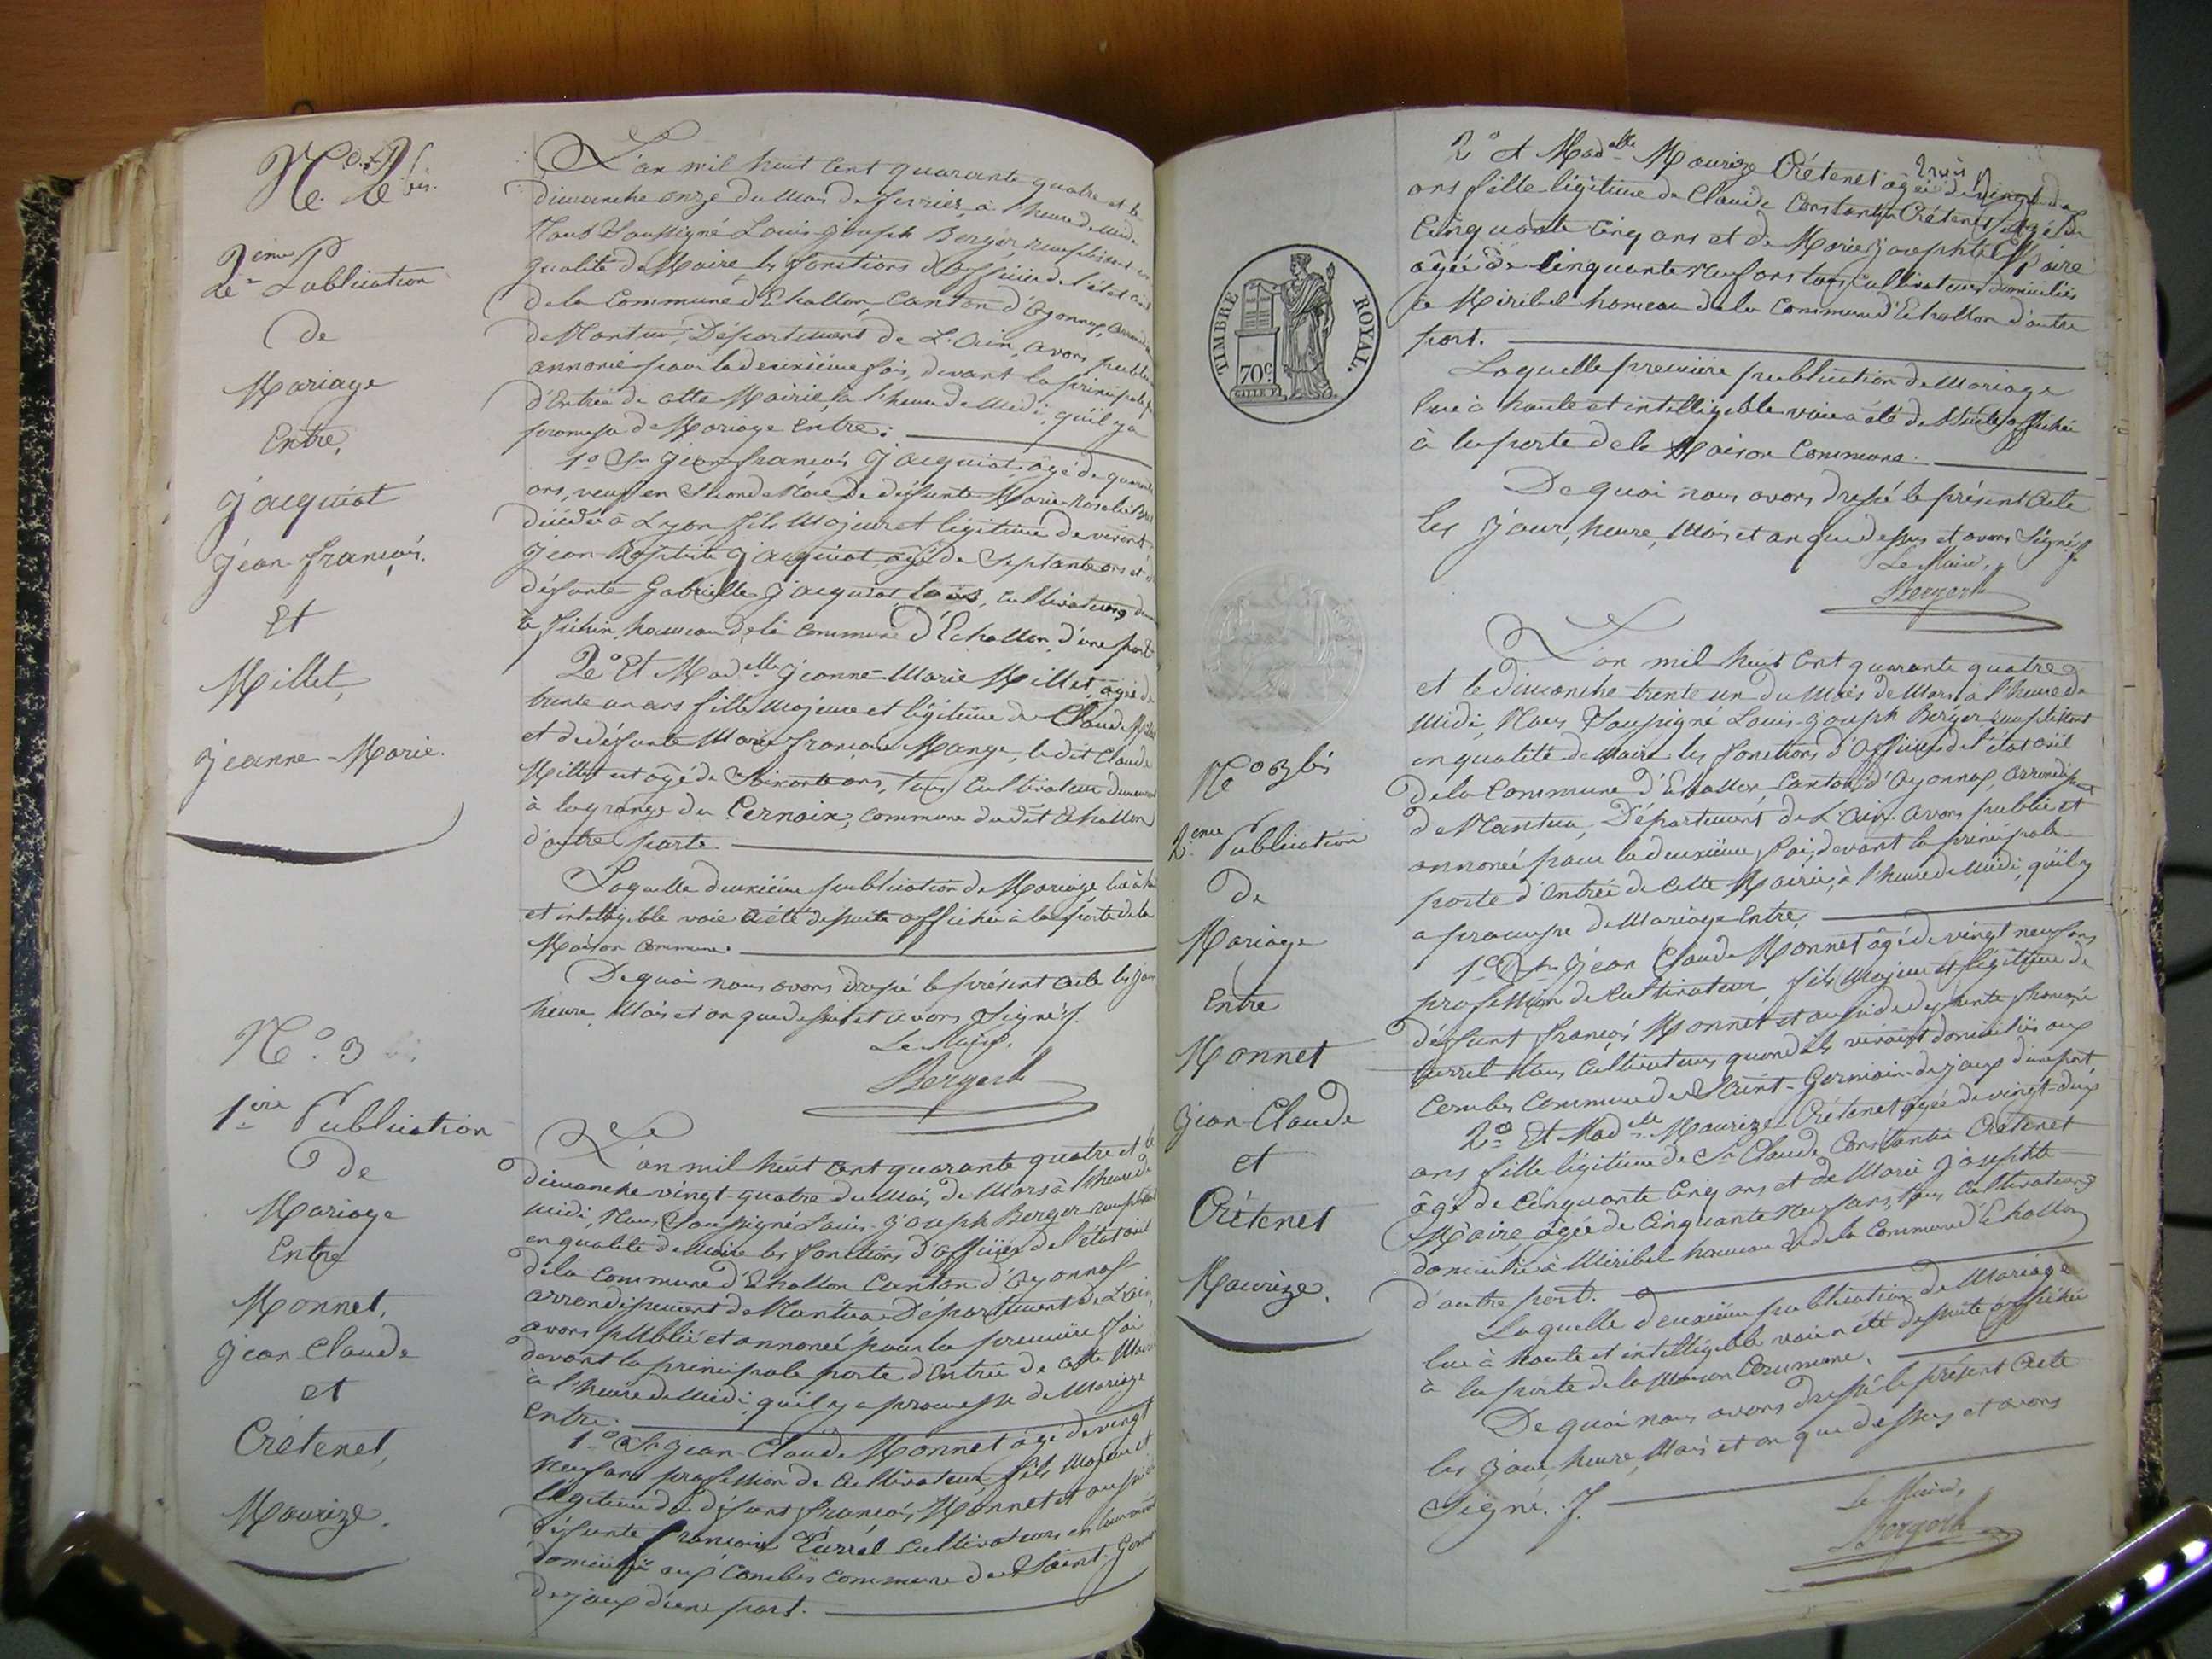 N.o 2 bis.
2eme Publication
de
Mariage
Entre,
Jacquiot
Jean-françois.
Et
Millet,
Jeanne-Marie.
L'an mil huit Cent quarante quatre et le
dimanche onze du Mois de fevrier, à l'heure de Midi
Nous Soussigné Louis-Joseph Berger, remplissant en
qualité de Maire les fonctions d'officier de l'état civil
de la Commune d'Echallon, Canton d'Oyonnax,
de Nantua, Département de L'Ain, avons publié
annoncé pour la deuxième fois, devant la principale
d'Entrée de cette Mairie, à l'heure de Midi, qu'il y a
promesse de Mariage Entre:
1o Sr Jean françois Jacquiot, âgé de quarante
ans, veuf en Seconde Noce de défunte Marie-Rosalie
décédée à Lyon fils Majeur et légitime de vivant
Jean Baptiste Jacquiot, âgé de Septante ans et de
défunte Gabrielle Jacquiot tous, cultivateurs
à hameau de la Commune d'Echallon, d'une part
2o Et Madelle Jeanne-Marie Millet, âgée de
trente un ans fille Majeure et légitime de Claude Millet
et de défunte Marie françoise Mange, le dit Claude
Millet est âgé de Soixante ans, tous Cultivateurs
à la grange du Cernoix, Commune du dit Echallon
d'autre parte
Laquelle deuxième publication de Mariage, lue à
et intelligible voie a été de suite affichée à la porte de la
Maison Commune.
De quoi nous avons dressé le présent Acte les jour
heure, Mois et an que dessus et avons Signé ./.
Le Maire,
Berger
N.o 3
1ere Publication
de
Mariage
Entre
Monnet,
Jean-Claude
et
Crétenet,
Maurize.
L'an mil huit Cent quarante quatre et le
dimanche vingt-quatre du Mois de Mars à l'heure de
midi, Nous Soussigné Louis-Joseph Berger remplissant
en qualité de Maire les fonctions d'officier de l'état civil
de la Commune d'Echallon Canton d'Oyonnax
arrondissement de Nantua Département de L'ain,
avons publié et annoncé pour la première foi
devant la principale porte d'Entrée de cette Mairie
à l'heure de Midi, qu'il y a promesse de Mariage
Entre.
1o Sr Jean-Claude Monnet âgé de vingt
Neuf ans profession de Cultivateur, fils Majeur et
légitime de défunt françois Monnet et aussi de
défunte françoise Turrel cultivateurs en leur vivant
domiciliés aux Combes Commune de Saint-Germain
de joux d'une part.
2o et Madelle Maurize Crétenet âgée de vingt deux
ans fille légitime de Claude Constantin Crétenet âgé de
Cinquante Cinq ans et de Marie Josephte Maire
âgée de Cinquante Neuf ans tous Cultivateurs domiciliés
à Miribel hameau de la Commune d'Echallon d'autre
part.
Laquelle première publication de Mariage
lue à haute et intelligible voie a été de Suite affichée
à la porte de la Maison Commune.
De quoi nous avons dressé le présent Acte
les Jour, heure, Mois et an que dessus et avons Signé ./.
Le Maire,
Berger
TIMBRE ROYAL.
70c.
N.o 3 bis
2.eme Publication
de
Mariage
Entre
Monnet
Jean-Claude
et
Crétenet
Maurize.
L'an mil huit Cent quarante quatre
et le dimanche trente un du Mois de Mars, à l'heure de
midi, Nous Soussigné Louis-Joseph Berger remplissant
en qualité de Maire les fonctions d'Officier de l'état civil
de la Commune d'Echallon Canton d'Oyonnax, arrondissement
de Nantua, Département de L'Ain. avons publié et
annoncé pour la deuxième foi, devant la principale
porte d'Entrée de Cette Mairie, à l'heure de Midi, qu'il y
a promesse de Mariage Entre
1o Sr Jean Claude Monnet âgé de vingt neuf ans
profession de Cultivateur, fils Majeur et légitime de
défunt françois Monnet et aussi de défunte françoise
Turrel tous Cultivateurs quand ils vivaient domiciliés aux
Combes Commune de Saint-Germain-de-joux d'une part
2o Et Madelle Maurize Crétenet âgée de vingt-deux
ans fille légitime de Sr Claude Constantin Crétenet
âgé de Cinquante Cinq ans et de Marie Josephte
Maire âgée de Cinquante Neuf ans, tous Cultivateurs
domiciliés à Miribel hameau de la Commune d'Echallon
d'autre part.
Laquelle deuxième publication de Mariage
lue à haute et intelligible voie a été de suite affichée
à la porte de la Maison Commune.
De quoi nous avons dressé le présent Acte
les Jour, heure, Mois et an que dessus et avons
Signé. ./.
Le Maire,
Berger